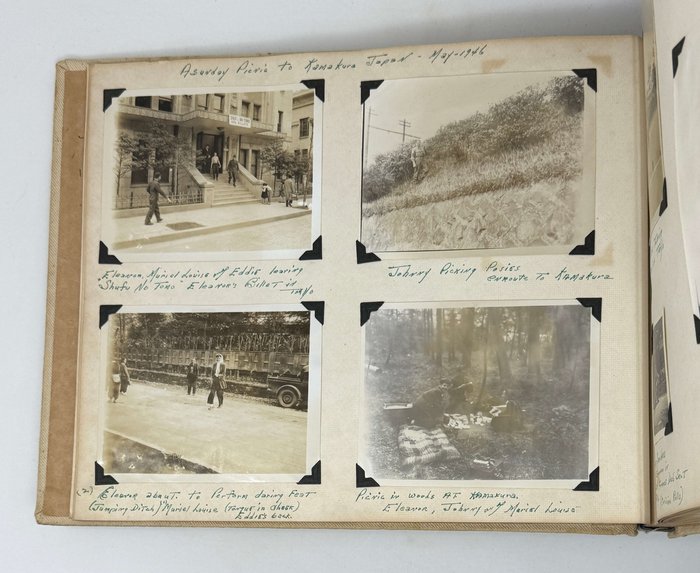 A Sunday Picnic to Kamakura Japan - May-1946
Eleanor, Muriel Louise & Eddie leaving
"Shufu No Tomo" Eleanor's Billet in
Tokyo
Johnny Picking Posies
enroute to Kamakura
(2) Eleanor about to Perform daring Feat
(Jumping Ditch) Muriel Louise (tongue in cheek)
Eddie's back.
Picnic in woods at Kamakura.
Eleanor, Johnny & Muriel Louise